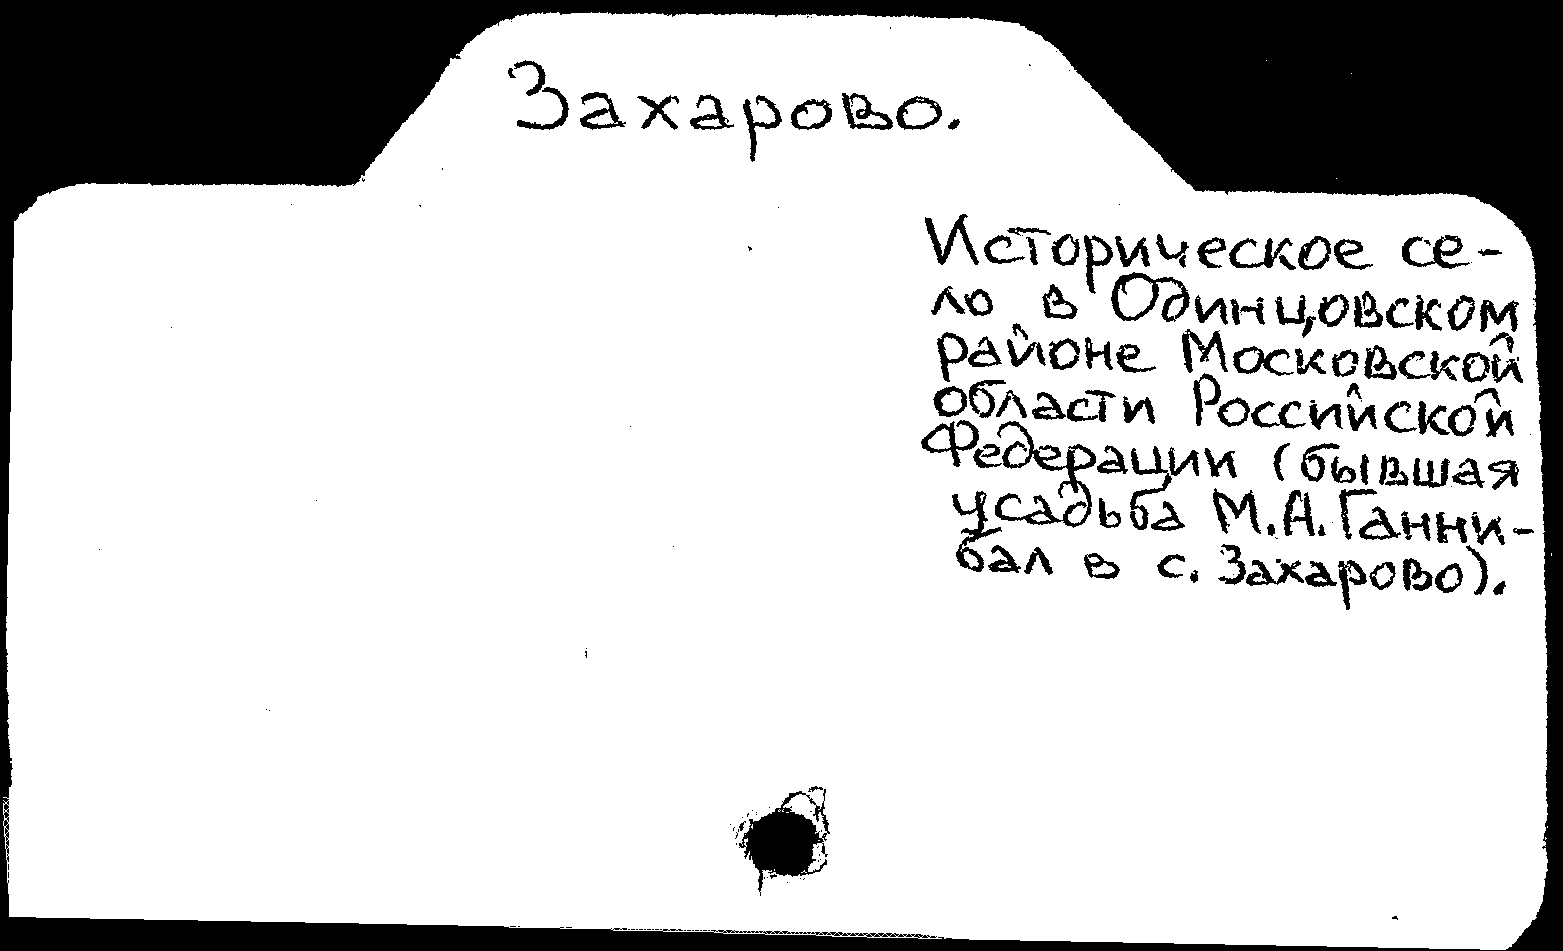 Захарово.
Историческое се-
ло в Одинцовском
районе Московской
области Российской
Федерации (бывшая
усадьба М.А.Ганни-
бал в с. Захарово).